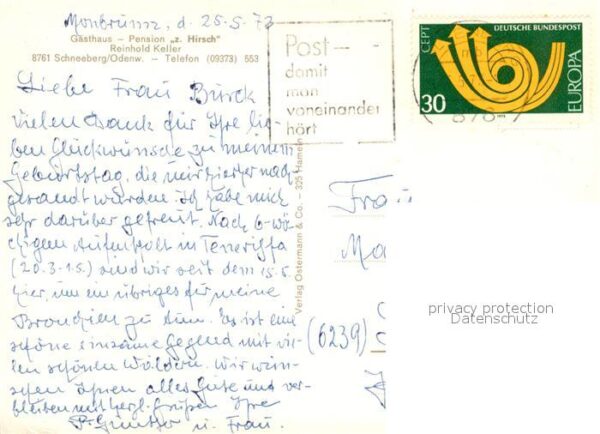 d. 25.5.73
Gasthaus – Pension „z. Hirsch"
Reinhold Keller
8761 Schneeberg/Odenw. – Telefon (09373) 553
Liebe Frau Burck
vielen Dank für Ihre lie-
ben Glückwünsche zu meinem
Geburtstag, die mir hierher nach-
gesandt wurden. Ich habe mich
sehr darüber gefreut. Nach 6-wö-
chigem Aufenthalt in Teneriffa
(20.3-1.5.) sind wir seit dem 15.5.
hier, um ein übriges für meine
Bronchien zu tun. Es ist eine
schöne einsame Gegend mit vie-
len schönen Wäldern. Wir wün-
schen Ihnen alles Gute und ver-
bleiben mit herzl. Grüßen Ihre
Günther u. Frau.
Post –
damit
man
voneinander
hört
CEPT
DEUTSCHE BUNDESPOST
EUROPA
30
Verlag Ostermann & Co. – 325 Hameln
Frau
Ma
(6239)
privacy protection
Datenschutz